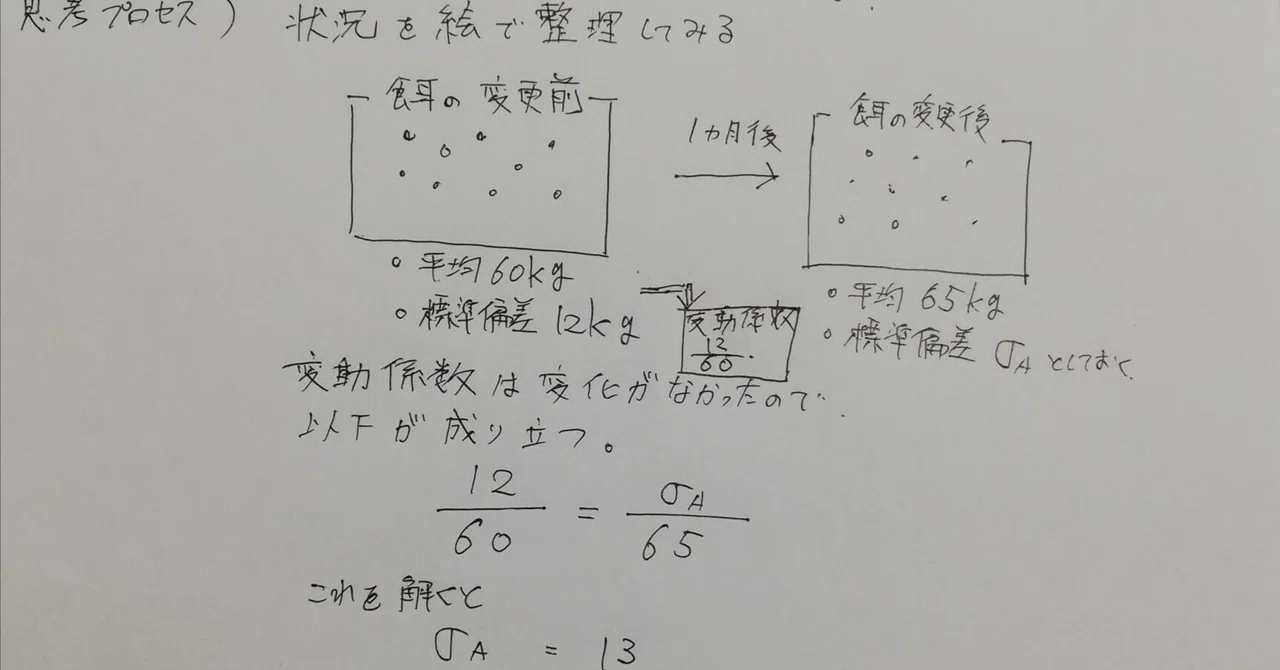 思考プロセス) 状況を絵で整理してみる
餌の変更前
1カ月後
餌の変更後
○ 平均60kg
○ 標準偏差12kg
変動係数
12
60
○ 平均 65kg
○ 標準偏差 σA としておく
変動係数は変化がなかったので
以下が成り立つ。
12 / 60 = σA / 65
これを解くと
σA = 13